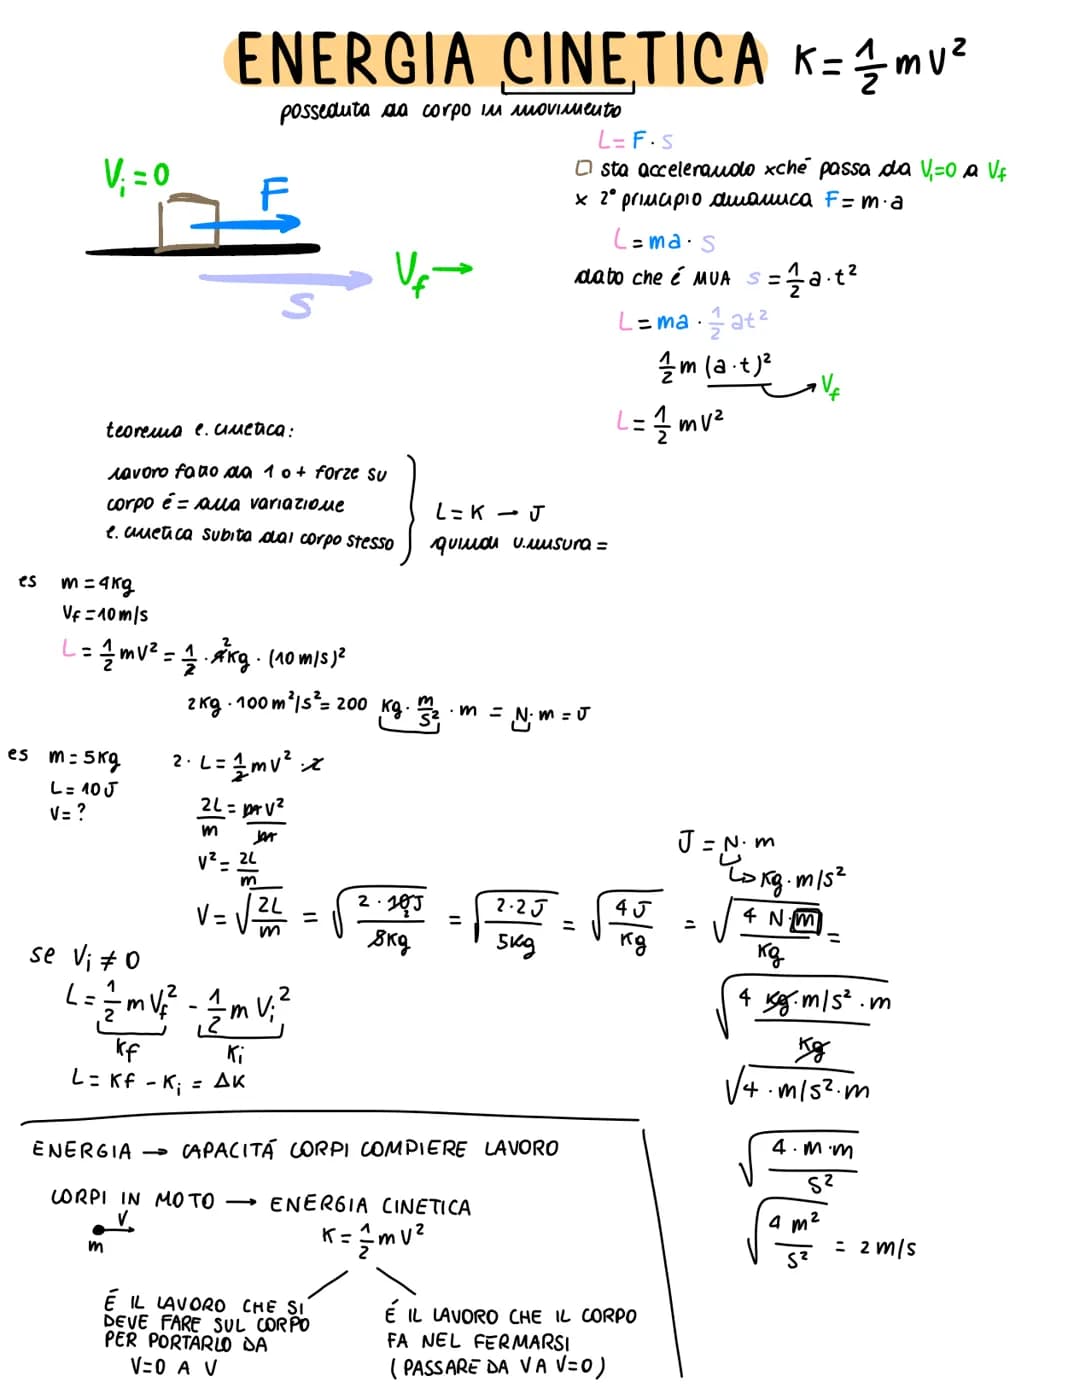 ENERGIA CINETICA K = 1/2 mv²
posseduta da corpo in movimento
Vi = 0
F
S
Vf →
L = F · s
□ sta accelerando xché passa da Vi=0 a Vf
x 2° principio dinamica F = m · a
L = ma · s
dato che é MUA s = 1/2 a · t²
L = ma · 1/2 at²
1/2 m (a · t)² → Vf
L = 1/2 mv²
teorema e. cinetica:
lavoro fatto da 1 o + forze su
corpo é = alla variazione
e. cinetica subita dal corpo stesso
L = K → J
quindi u.misura =
es m = 4Kg
Vf = 10 m/s
L = 1/2 mv² = 1/2 · 4Kg 2 · (10 m/s)²
2Kg · 100 m²/s² = 200 Kg · m/s² · m = N · m = J
es m = 5Kg
L = 10J
V = ?
2 · L = 1/2 mv² · 2
2L/m = mv²/m
v² = 2L/m
V = √(2L/m) = √(2 · 10J/5Kg) = √(2·2J/5Kg) = √(4J/Kg) = √(4 N m/Kg) =
J = N · m
↳ Kg · m/s²
√(4 Kg · m/s² · m/Kg)
√4 · m/s² · m
√(4 · m · m/s²)
√(4 m²/s²) = 2 m/s
se Vi ≠ 0
L = 1/2 m Vf² - 1/2 m Vi²
Kf Ki
L = Kf - Ki = ΔK
ENERGIA → CAPACITÁ CORPI COMPIERE LAVORO
CORPI IN MOTO → ENERGIA CINETICA
V
m
K = 1/2 mv²
É IL LAVORO CHE SI
DEVE FARE SUL CORPO
PER PORTARLO DA
V=0 A V
É IL LAVORO CHE IL CORPO
FA NEL FERMARSI
(PASSARE DA V A V=0)